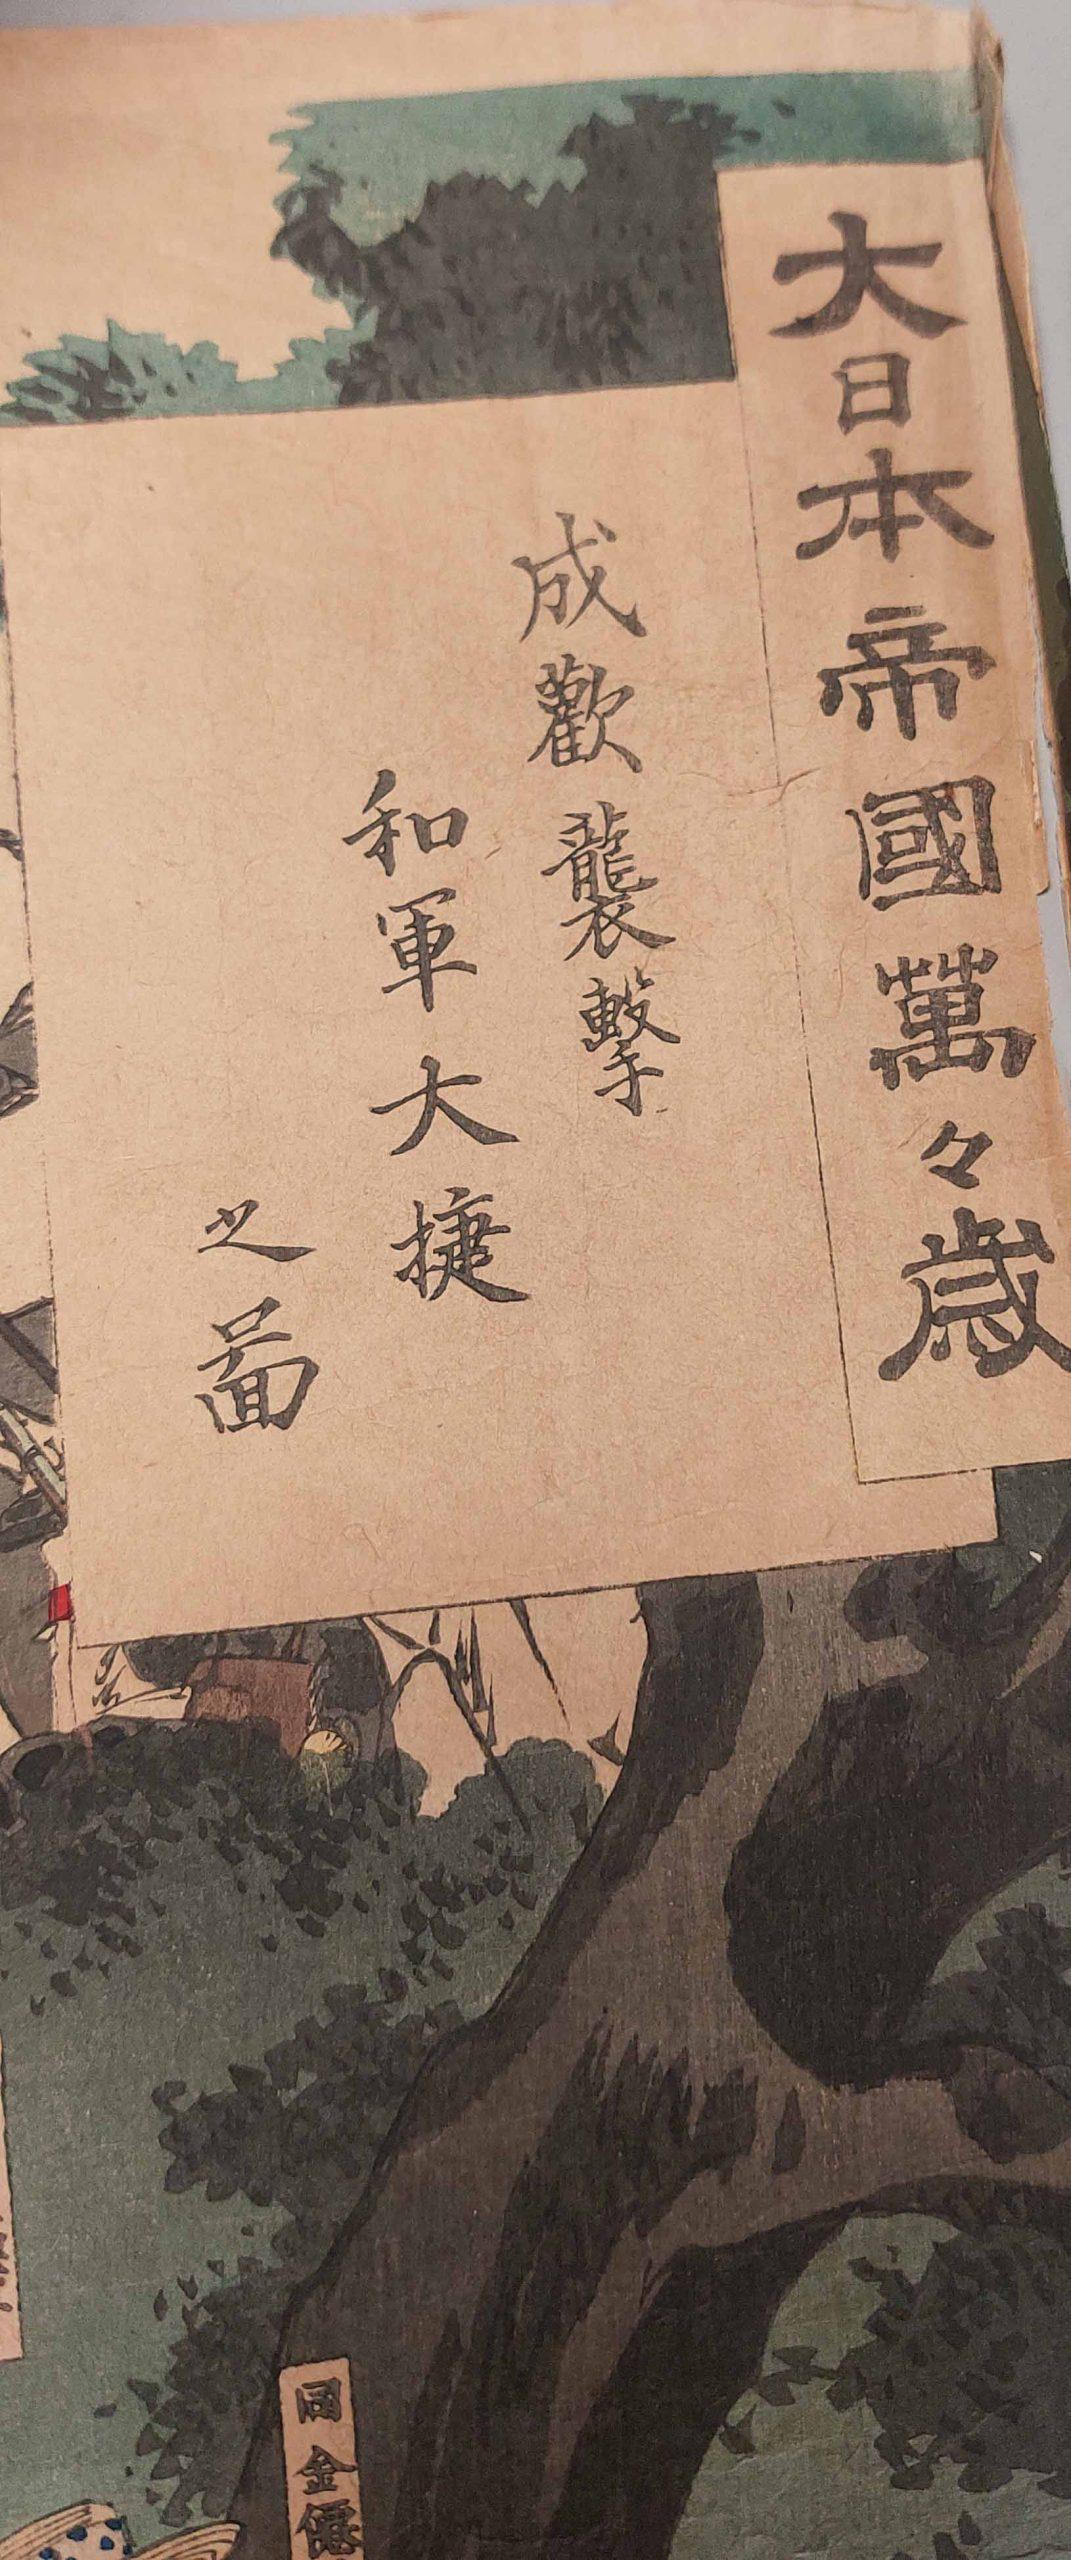 大日本帝國萬々歳
成歡襲擊
和軍大捷
之圖
同金